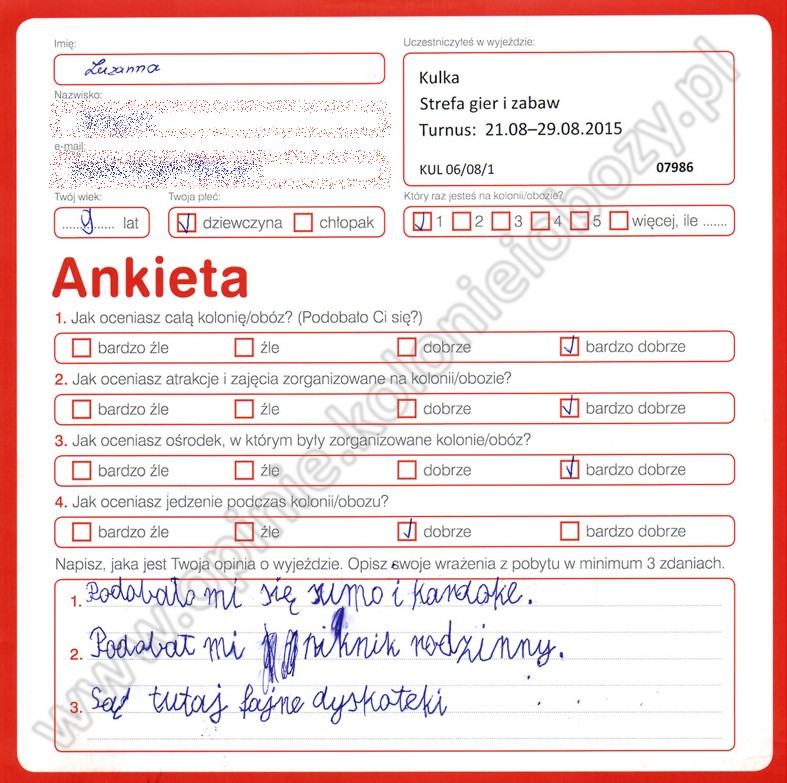 Imię:
Zuzanna
Uczestniczyłeś w wyjeździe:
Kulka
Strefa gier i zabaw
Turnus: 21.08–29.08.2015
KUL 06/08/1 07986
Nazwisko:
e-mail:
Twój wiek:
9 lat
Twoja płeć:
dziewczyna chłopak
Który raz jesteś na kolonii/obozie?
1 2 3 4 5 więcej, ile .......
Ankieta
1. Jak oceniasz całą kolonię/obóz? (Podobało Ci się?)
bardzo źle źle dobrze bardzo dobrze
2. Jak oceniasz atrakcje i zajęcia zorganizowane na kolonii/obozie?
bardzo źle źle dobrze bardzo dobrze
3. Jak oceniasz ośrodek, w którym były zorganizowane kolonie/obóz?
bardzo źle źle dobrze bardzo dobrze
4. Jak oceniasz jedzenie podczas kolonii/obozu?
bardzo źle źle dobrze bardzo dobrze
Napisz, jaka jest Twoja opinia o wyjeździe. Opisz swoje wrażenia z pobytu w minimum 3 zdaniach.
1. Podobało mi się sumo i karaoke.
2. Podobat mi niknik rodzinny.
3. Są tutaj fajne dyskoteki
www.opinie.kolonieiobozy.pl